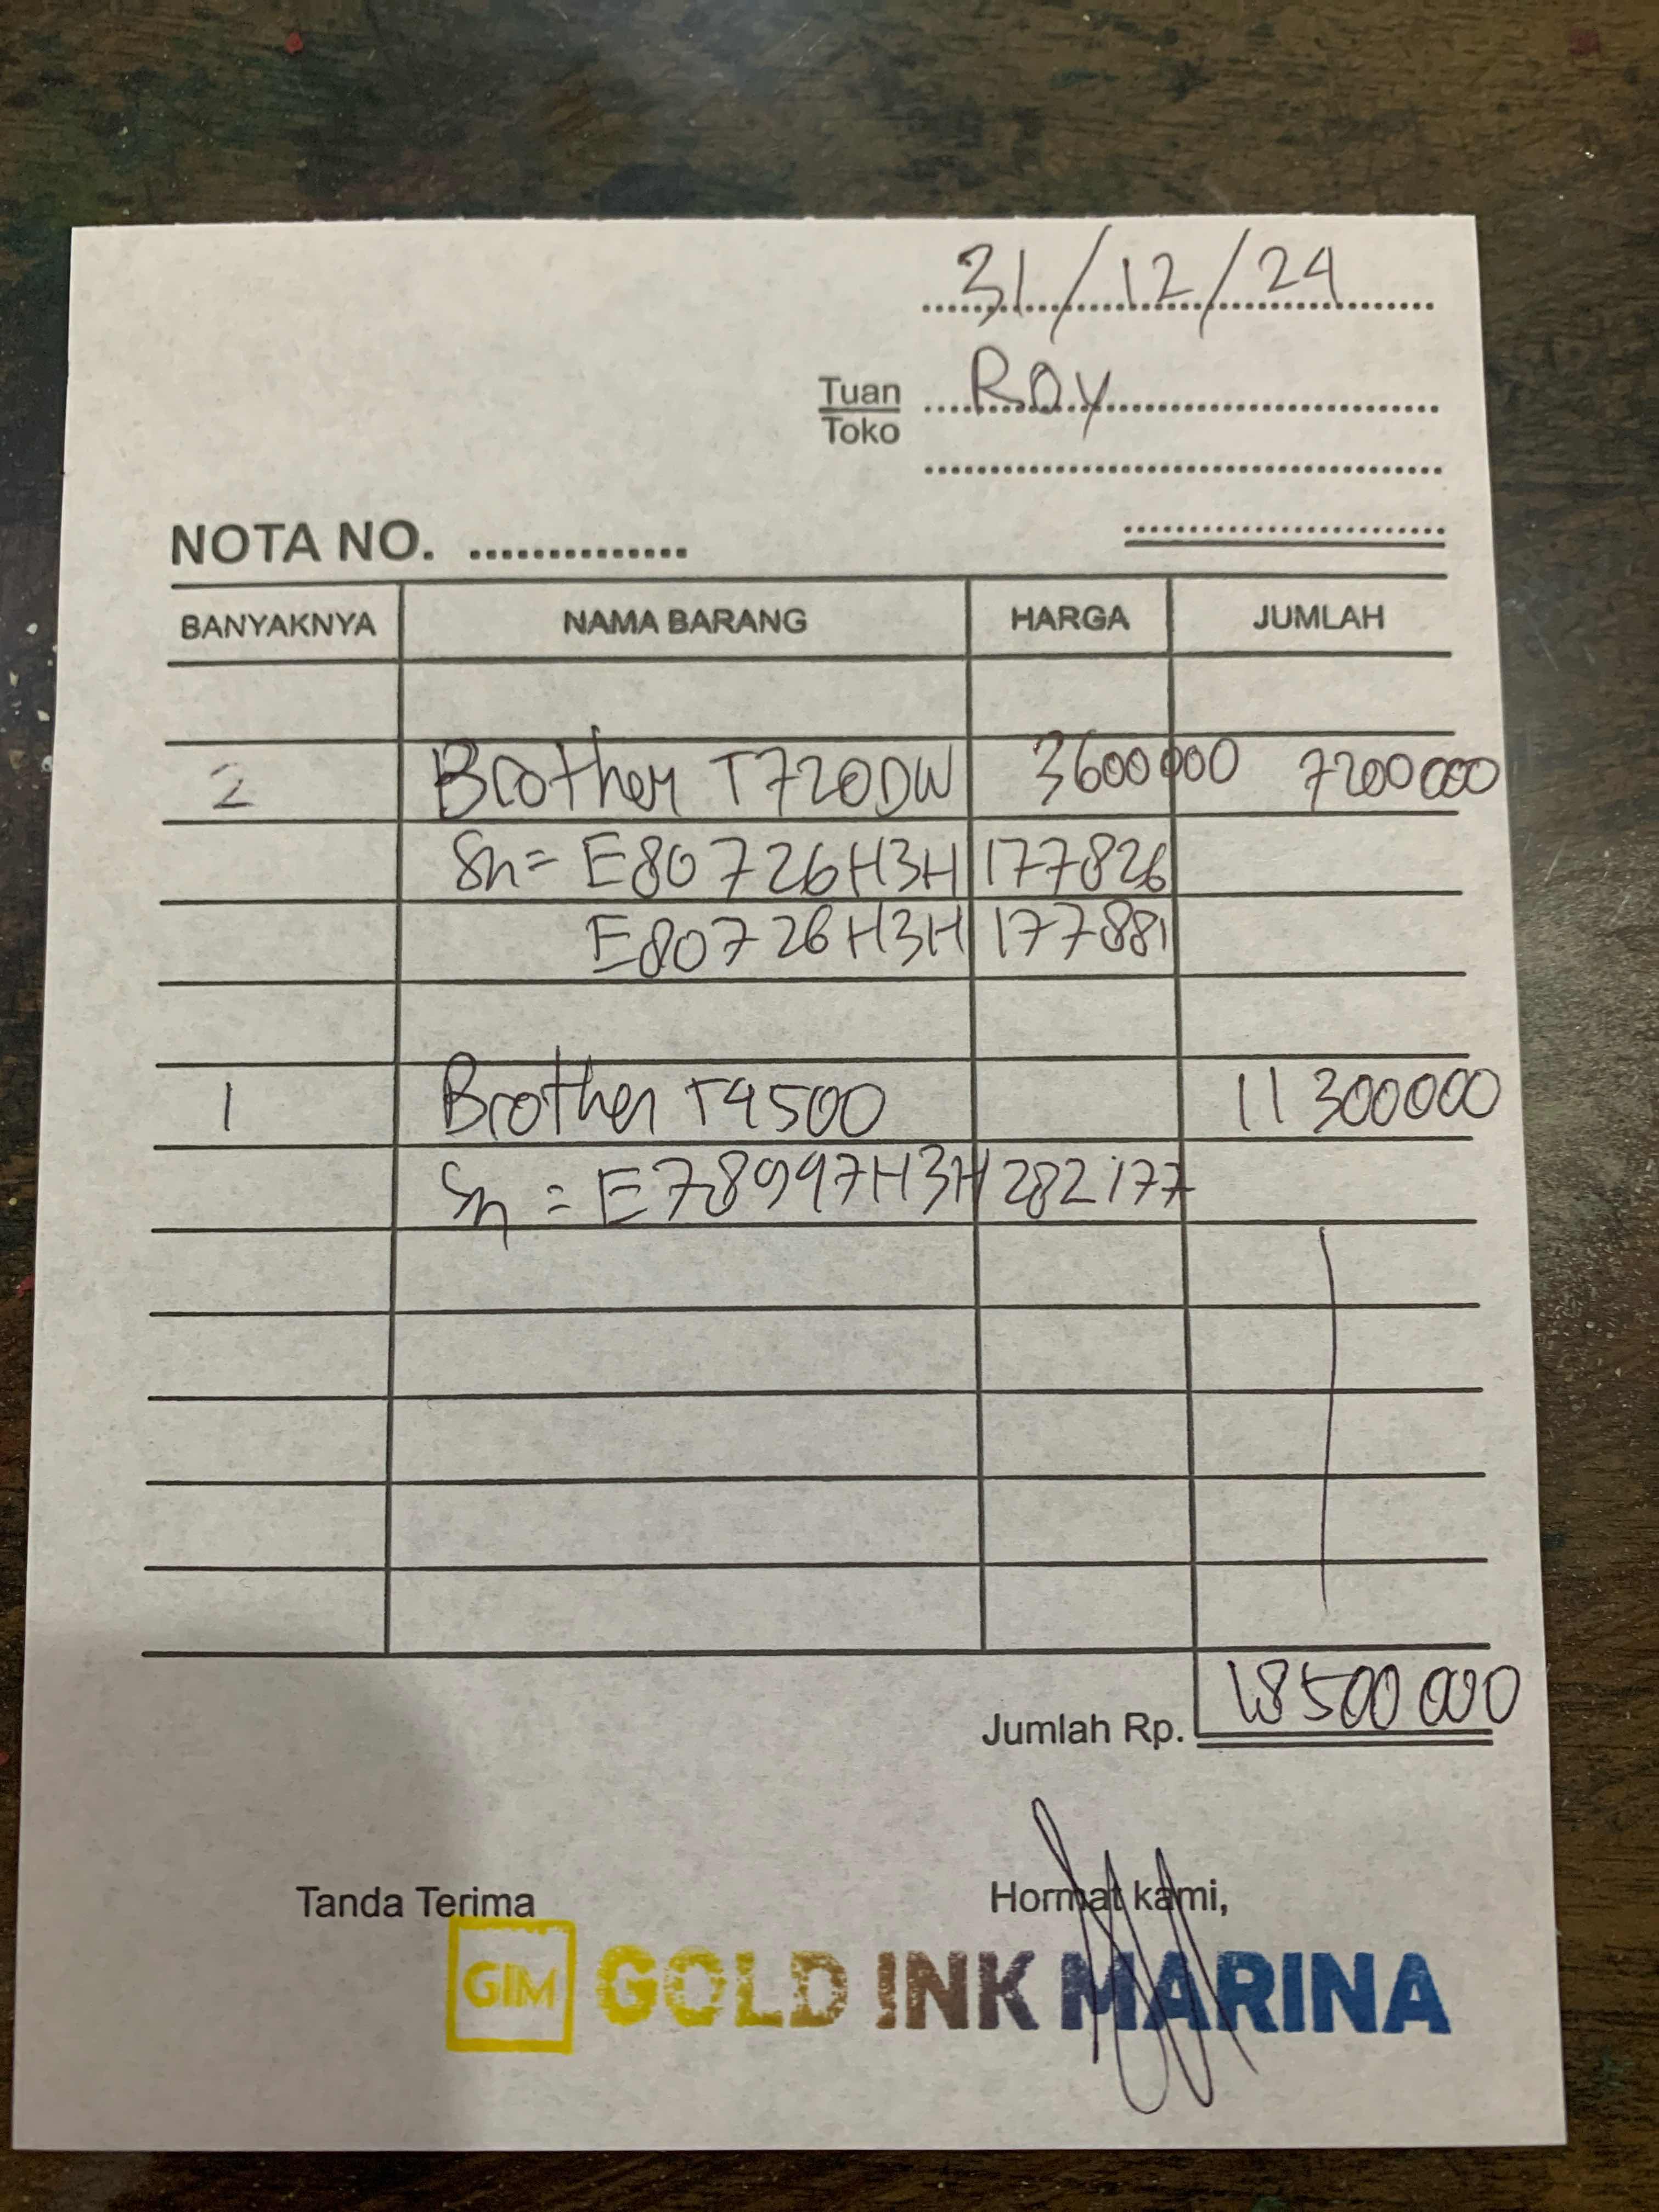 31/12/24
Tuan Roy
Toko
NOTA NO. ...............
BANYAKNYA NAMA BARANG HARGA JUMLAH
2 Brother T720DW 3600000 7200000
Sn = E80726H3H177826
E80726H3H177881
1 Brother T4500 11300000
Sn = E78997H3H282177
Jumlah Rp. 18500000
Tanda Terima Hormat kami,
GIM GOLD INK MARINA